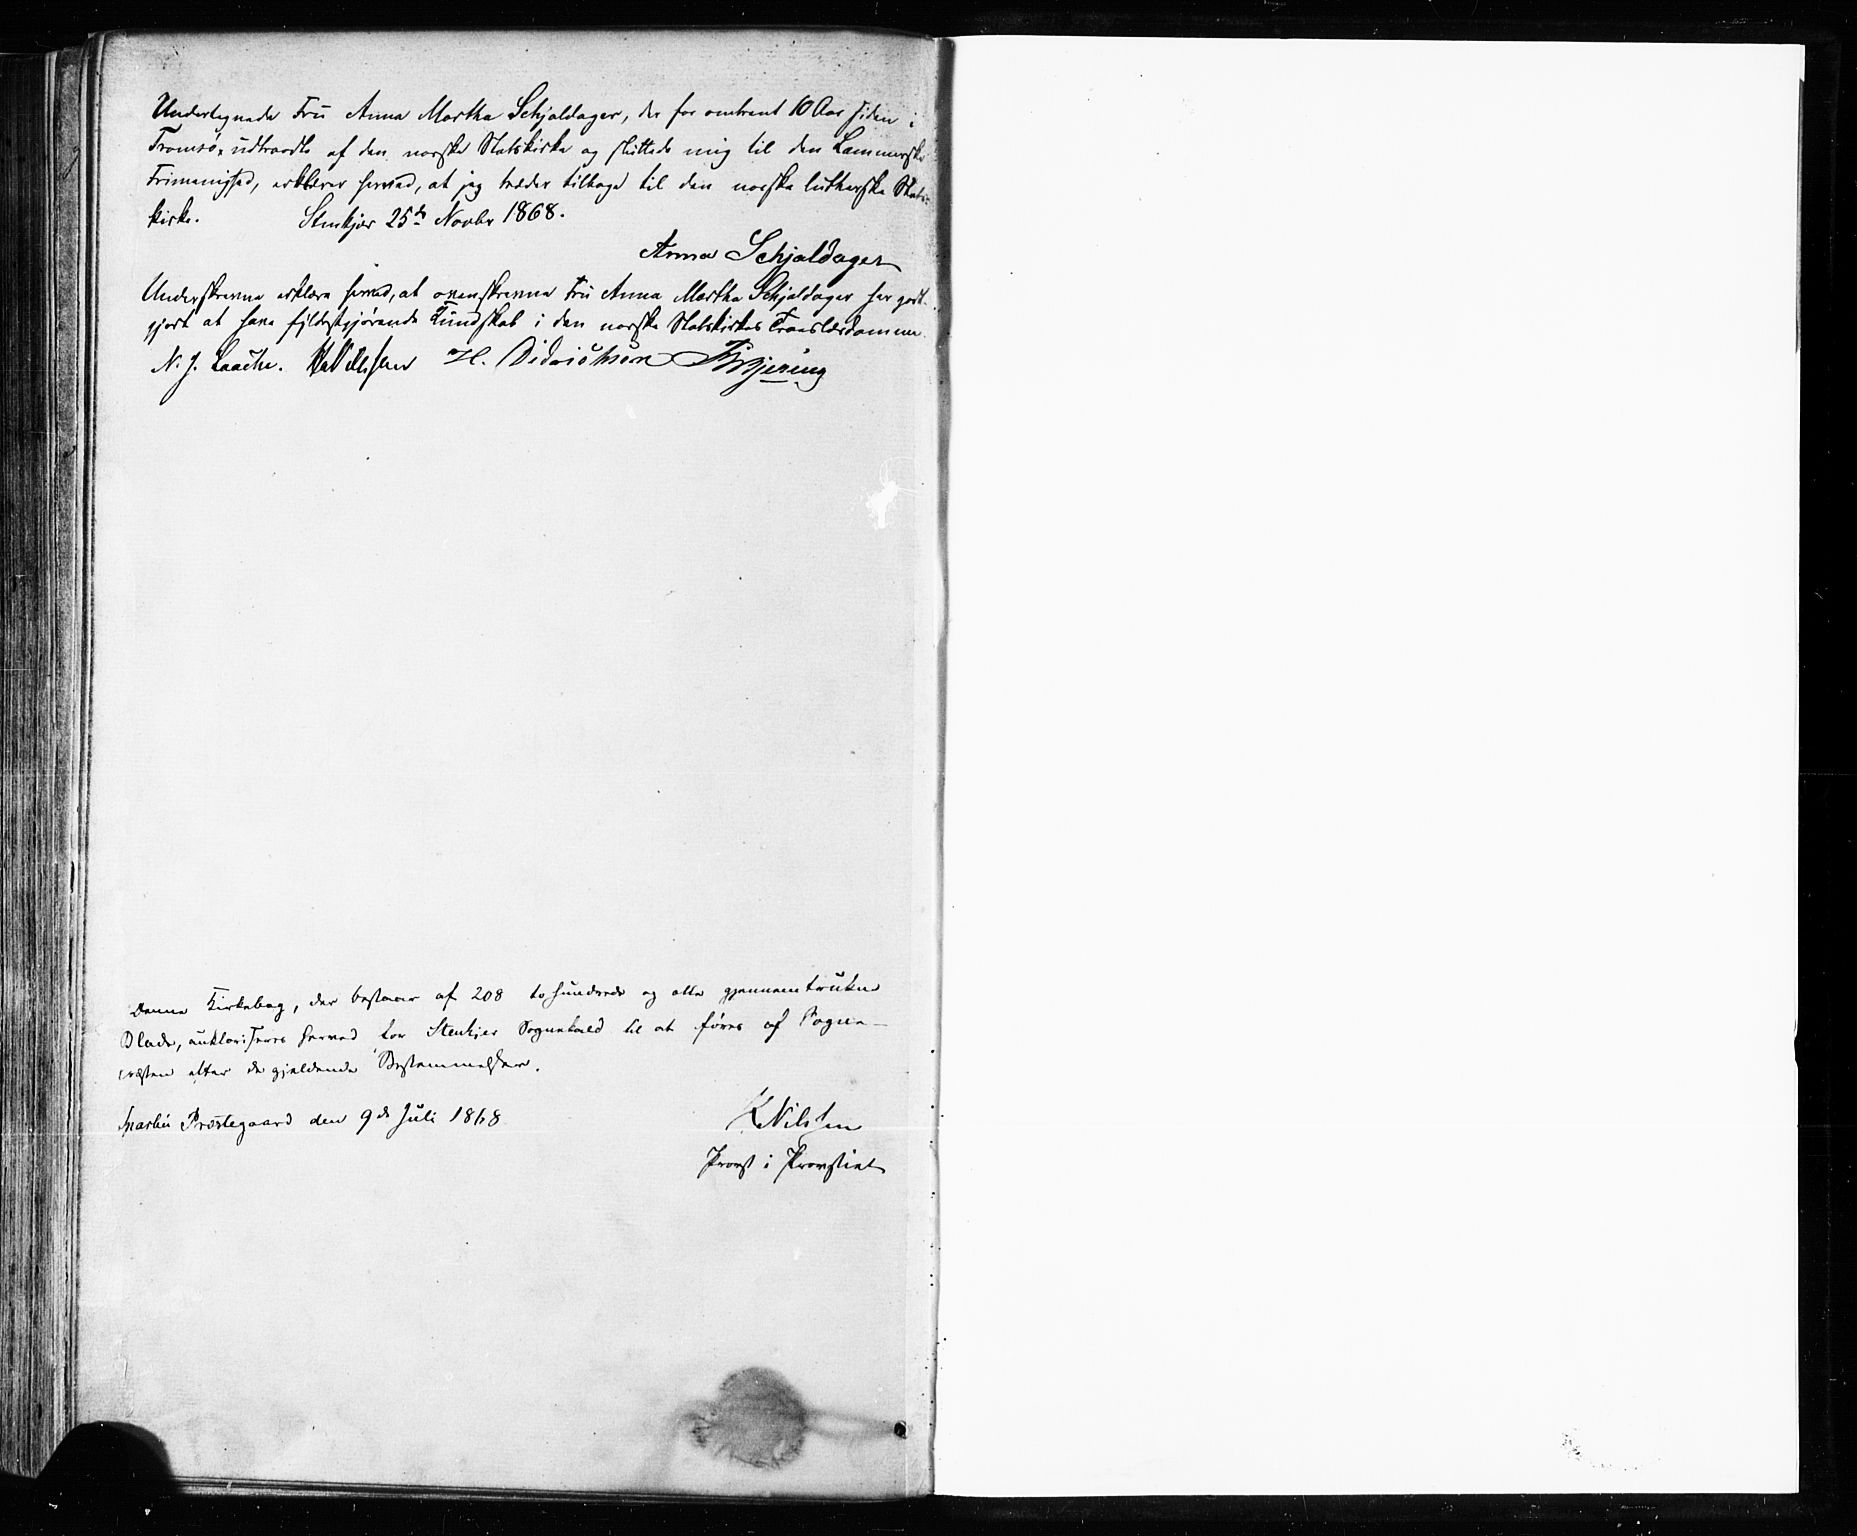 Undertegnede Fru Anna Martha Schjeldager, der for omtrent 10 Aar siden i
Tromsö udtraadte af den norske Statskirke og sluttede mig til den Lammerske
Frimenighed, erklærer herved, at jeg træder tilbage til den norske lutherske Stats-
kirke. Stenkjær 25de Novbr 1868.
Anna Schjeldager
Underskrevne erklære herved, at ovenskrevne Fru Anna Martha Schjeldager har godt-
gjort at have fyldestgjørende Kundskab i den norske Statskirkes Troeslærdomme.
N. J. Laache. H. Didrichsen
Denne Kirkebog, der bestaaer af 208 to hundrede og otte gjennemtrukne
Blade, auktoriseres herved for Stenkjer Sognekald til at føres af Sogne-
præsten efter de gjeldende Bestemmelser.
Sparbu Præstegaard den 9de Juli 1868
K Nilssen
Provst i Provstiet